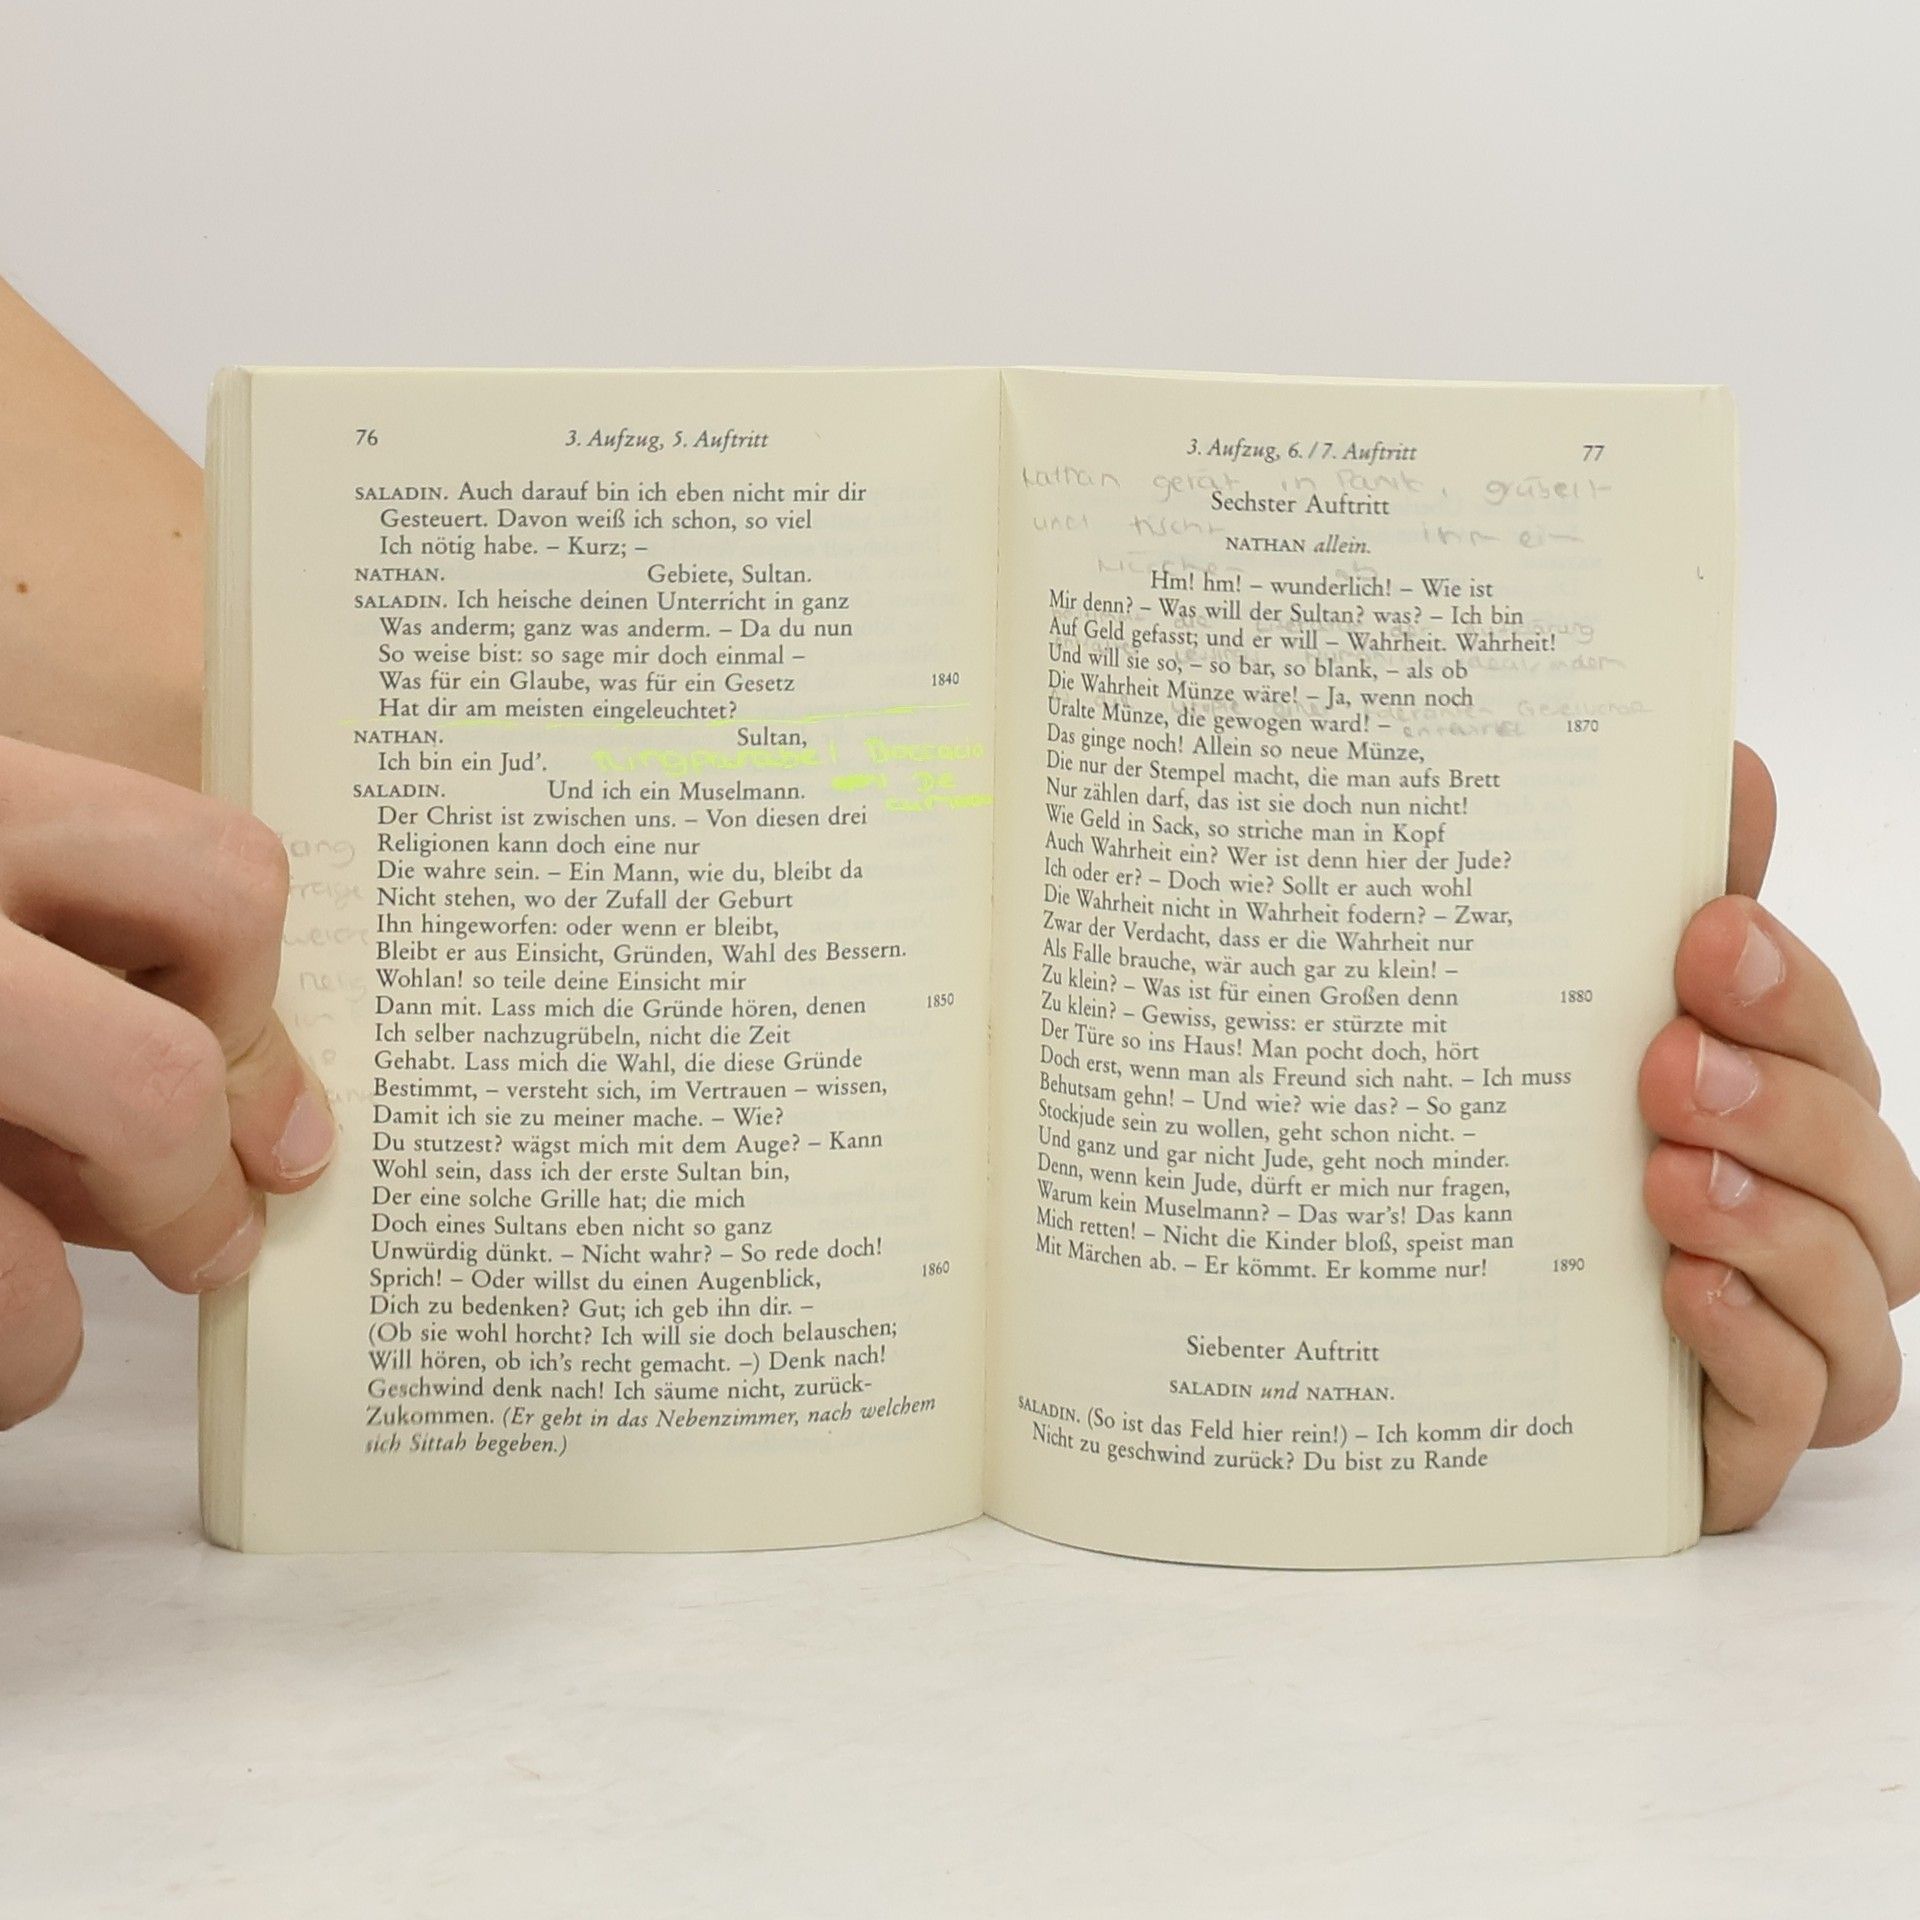 76
3. Aufzug, 5. Auftritt
SALADIN. Auch darauf bin ich eben nicht mir dir
Gesteuert. Davon weiß ich schon, so viel
Ich nötig habe. – Kurz; –
NATHAN. Gebiete, Sultan.
SALADIN. Ich heische deinen Unterricht in ganz
Was anderm; ganz was anderm. – Da du nun
So weise bist: so sage mir doch einmal –
Was für ein Glaube, was für ein Gesetz 1840
Hat dir am meisten eingeleuchtet?
NATHAN. Sultan,
Ich bin ein Jud'. Ringparabel
SALADIN. Und ich ein Muselmann. De
Der Christ ist zwischen uns. – Von diesen drei
Religionen kann doch eine nur
Die wahre sein. – Ein Mann, wie du, bleibt da
Nicht stehen, wo der Zufall der Geburt
Ihn hingeworfen: oder wenn er bleibt,
Bleibt er aus Einsicht, Gründen, Wahl des Bessern.
Wohlan! so teile deine Einsicht mir
Dann mit. Lass mich die Gründe hören, denen 1850
Ich selber nachzugrübeln, nicht die Zeit
Gehabt. Lass mich die Wahl, die diese Gründe
Bestimmt, – versteht sich, im Vertrauen – wissen,
Damit ich sie zu meiner mache. – Wie?
Du stutzest? wägst mich mit dem Auge? – Kann
Wohl sein, dass ich der erste Sultan bin,
Der eine solche Grille hat; die mich
Doch eines Sultans eben nicht so ganz
Unwürdig dünkt. – Nicht wahr? – So rede doch!
Sprich! – Oder willst du einen Augenblick, 1860
Dich zu bedenken? Gut; ich geb ihn dir. –
(Ob sie wohl horcht? Ich will sie doch belauschen;
Will hören, ob ich's recht gemacht. –) Denk nach!
Geschwind denk nach! Ich säume nicht, zurück-
Zukommen. (Er geht in das Nebenzimmer, nach welchem
sich Sittah begeben.)
3. Aufzug, 6. / 7. Auftritt
77
Nathan gerät in Panik, grübelt
Sechster Auftritt
und tischt ihm ein
NATHAN allein.
Märchen ab
Hm! hm! – wunderlich! – Wie ist
Mir denn? – Was will der Sultan? was? – Ich bin
Auf Geld gefasst; und er will – Wahrheit. Wahrheit!
Und will sie so, – so bar, so blank, – als ob
Die Wahrheit Münze wäre! – Ja, wenn noch
Uralte Münze, die gewogen ward! – 1870
Das ginge noch! Allein so neue Münze,
Die nur der Stempel macht, die man aufs Brett
Nur zählen darf, das ist sie doch nun nicht!
Wie Geld in Sack, so striche man in Kopf
Auch Wahrheit ein? Wer ist denn hier der Jude?
Ich oder er? – Doch wie? Sollt er auch wohl
Die Wahrheit nicht in Wahrheit fodern? – Zwar,
Zwar der Verdacht, dass er die Wahrheit nur
Als Falle brauche, wär auch gar zu klein! –
Zu klein? – Was ist für einen Großen denn 1880
Zu klein? – Gewiss, gewiss: er stürzte mit
Der Türe so ins Haus! Man pocht doch, hört
Doch erst, wenn man als Freund sich naht. – Ich muss
Behutsam gehn! – Und wie? wie das? – So ganz
Stockjude sein zu wollen, geht schon nicht. –
Und ganz und gar nicht Jude, geht noch minder.
Denn, wenn kein Jude, dürft er mich nur fragen,
Warum kein Muselmann? – Das war's! Das kann
Mich retten! – Nicht die Kinder bloß, speist man
Mit Märchen ab. – Er kömmt. Er komme nur! 1890
Siebenter Auftritt
SALADIN und NATHAN.
SALADIN. (So ist das Feld hier rein!) – Ich komm dir doch
Nicht zu geschwind zurück? Du bist zu Rande